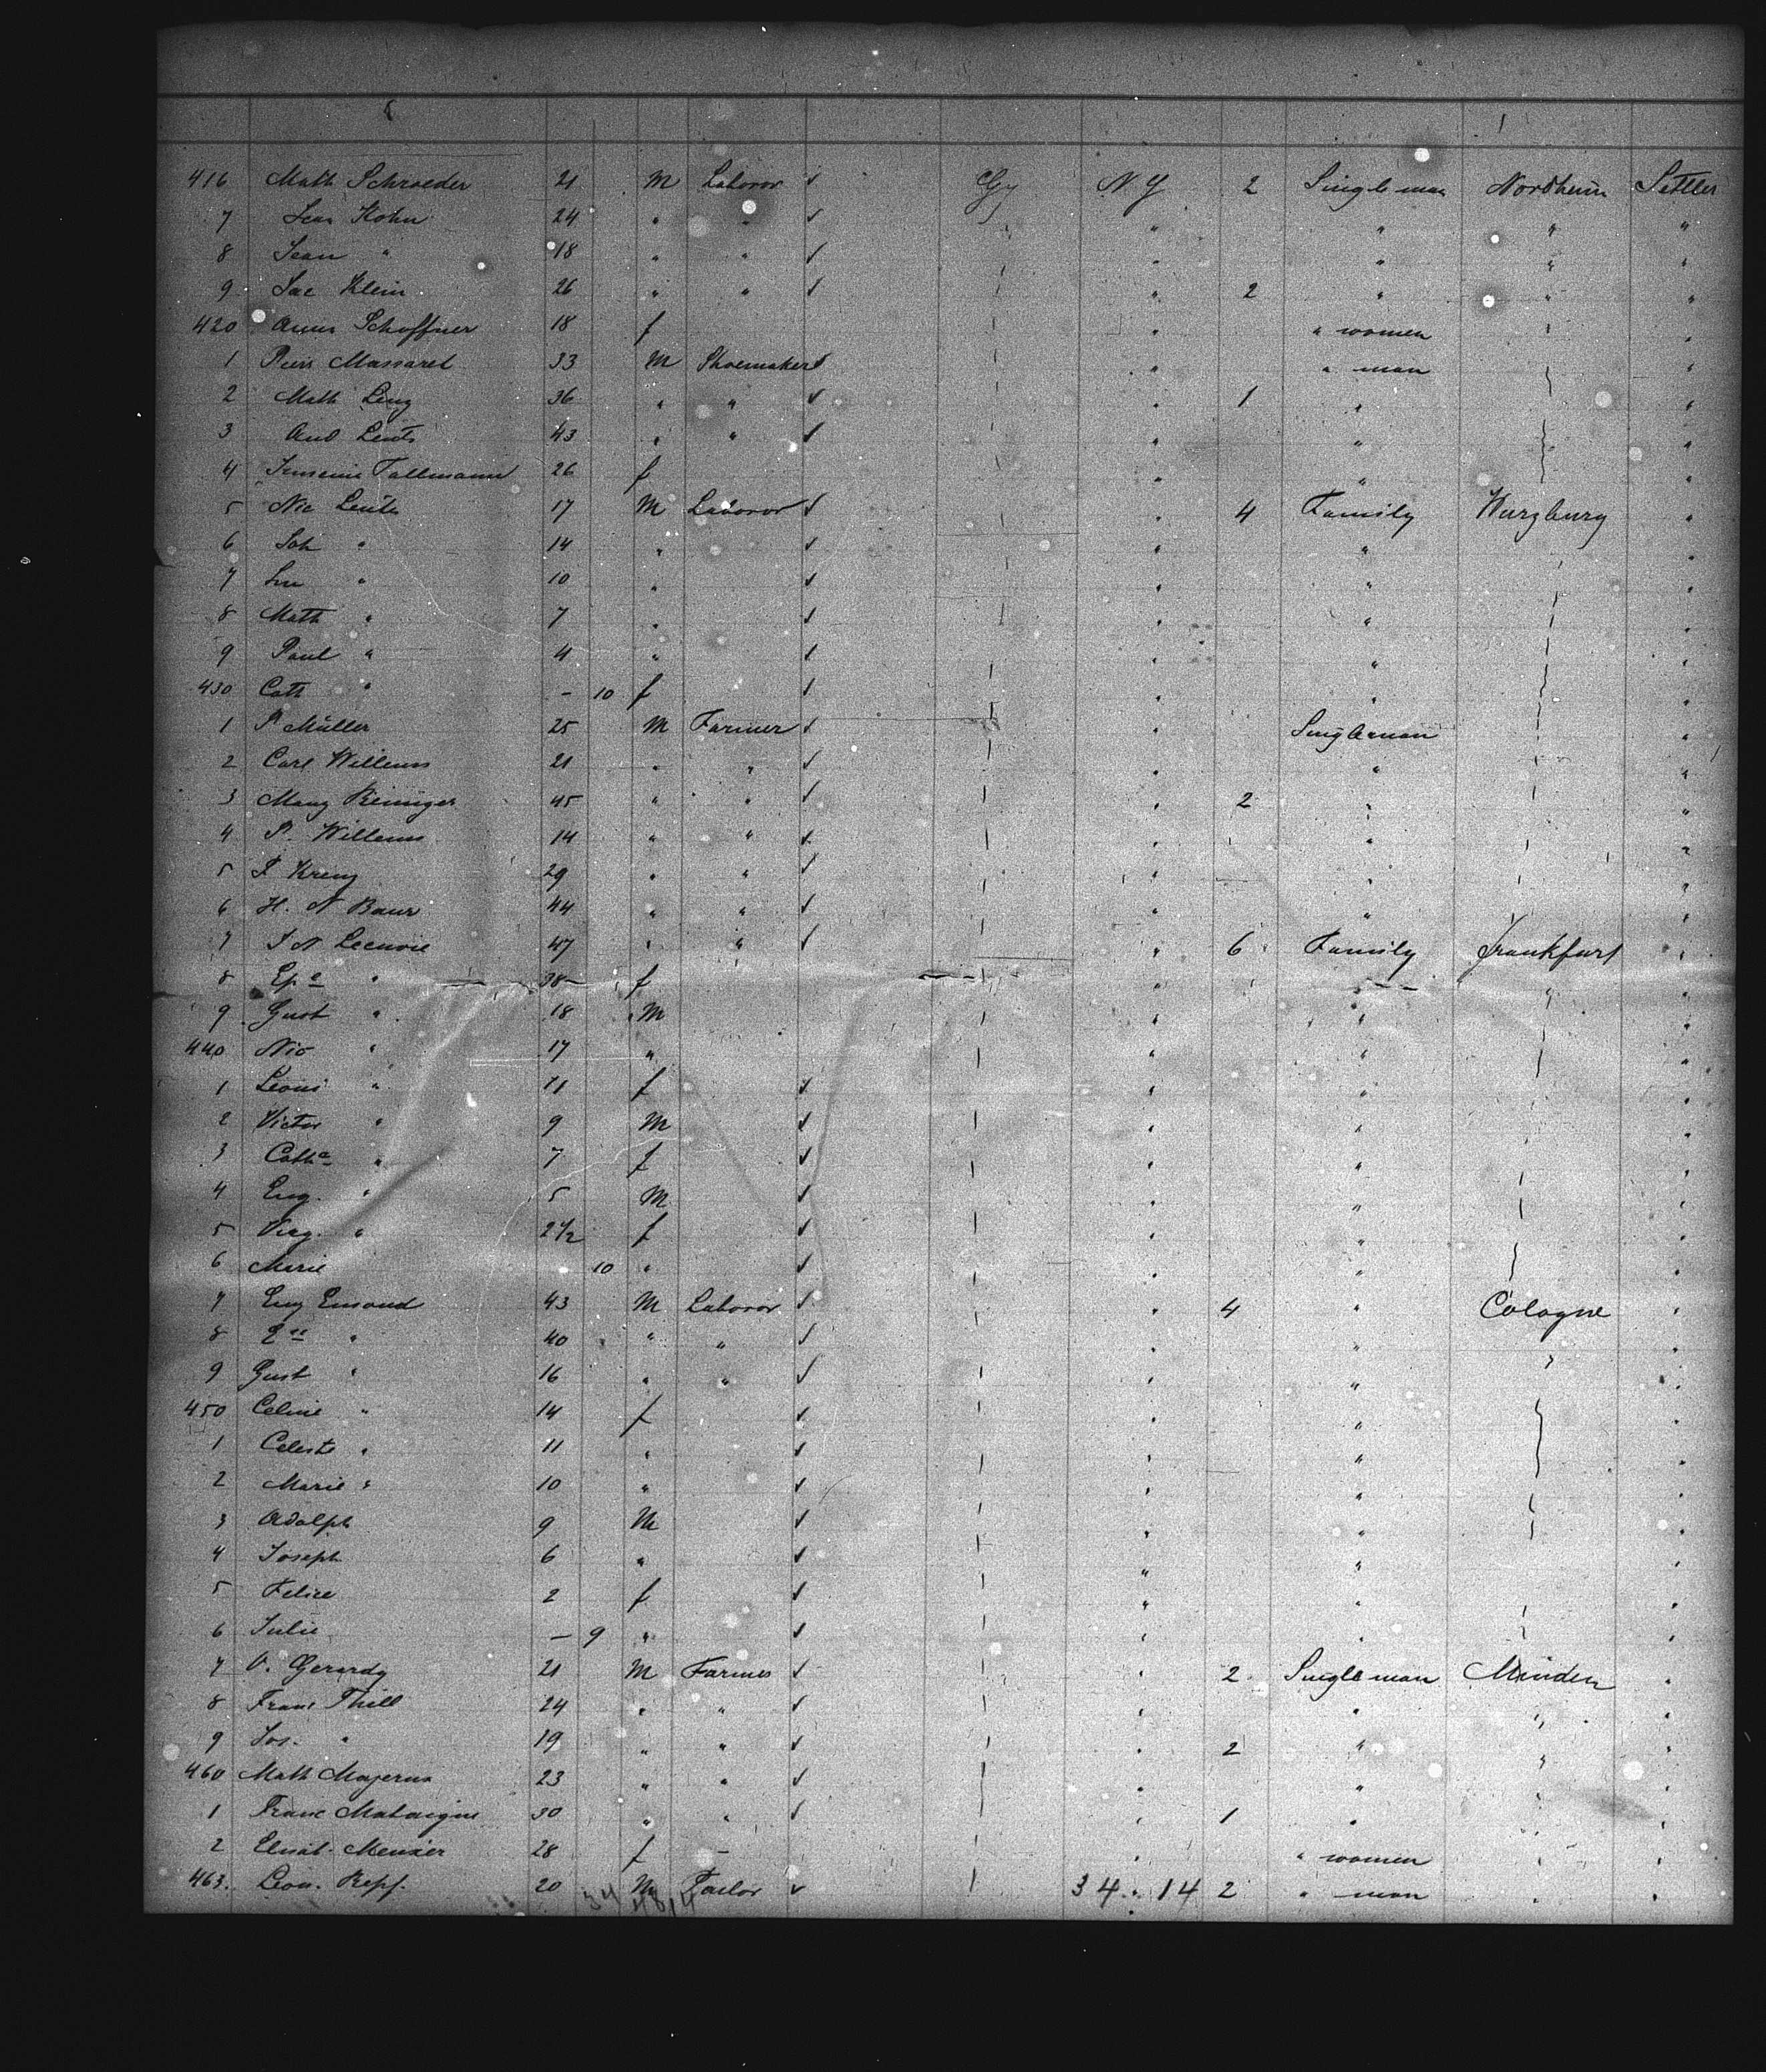 416 Math Schroeder 21 M Laboror ✓ Gy N Y 2 Single man Nordheim Settler
7 Jean Kohn 24 " " ✓ " " " "
8 Jean " 18 " " ✓ " " " "
9 Jac Klein 26 " " ✓ " 2 " " "
420 Anna Schoffner 18 f " " women "
1 Massaret 33 M Shoemaker ✓ " " man "
2 Math Leng 36 " " ✓ " 1 " "
3 And Lents 43 " " ✓ " " "
4 Tallmann 26 f " " "
5 Nic Lents 17 M Laboror ✓ " 4 Family Wurzburg "
6 Joh " 14 " ✓ " " "
7 " 10 " ✓ " " "
8 Math " 7 " ✓ " " "
9 Paul " 4 " ✓ " " "
430 Cath " – 10 f ✓ " " "
1 P Müller 25 M Farmer ✓ " Single man "
2 Carl Willems 21 " " ✓ " " "
3 Reiniger 45 " " ✓ " 2 " "
4 P. Willems 14 " " ✓ " " "
5 Kreng 29 " " ✓ " " "
6 H. N Baur 44 " " ✓ " " "
7 J N 47 " " ✓ " 6 Family Frankfurt "
8 Ep e " 38 f " " " "
9 Gust " 18 M " " "
440 Nic " 17 " " " "
1 Leoni " 11 f ✓ " " "
2 Victor " 9 M ✓ " " "
3 Cath e " 7 f ✓ " " "
4 Eug. " 5 M ✓ " " "
5 Virg. " 2 1/2 f ✓ " " "
6 Marie 10 " ✓ " " "
7 Eug Emond 43 M Laboror ✓ " 4 " Cologne "
8 " 40 " " ✓ " " "
9 Gust " 16 " " ✓ " " "
450 Celine " 14 f ✓ " " "
1 Celeste " 11 " ✓ " " "
2 Marie " 10 " ✓ " " "
3 Adolph 9 M ✓ " " "
4 Joseph 6 " ✓ " " "
5 Felice 2 f ✓ " " "
6 Julie – 9 " ✓ " " "
7 V. Gerardy 21 M Farmer ✓ " 2 Single man Minden "
8 Franc Thill 24 " " ✓ " " " "
9 Jos. " 19 " " ✓ " 2 " " "
460 Math Majerus 23 " " ✓ " " " "
1 Franc 30 " " ✓ " 1 " " "
2 Elisab. 28 f – " " women " "
463. Leon. Repf. 20 M Tailor ✓ 34 . 14 2 " man " "